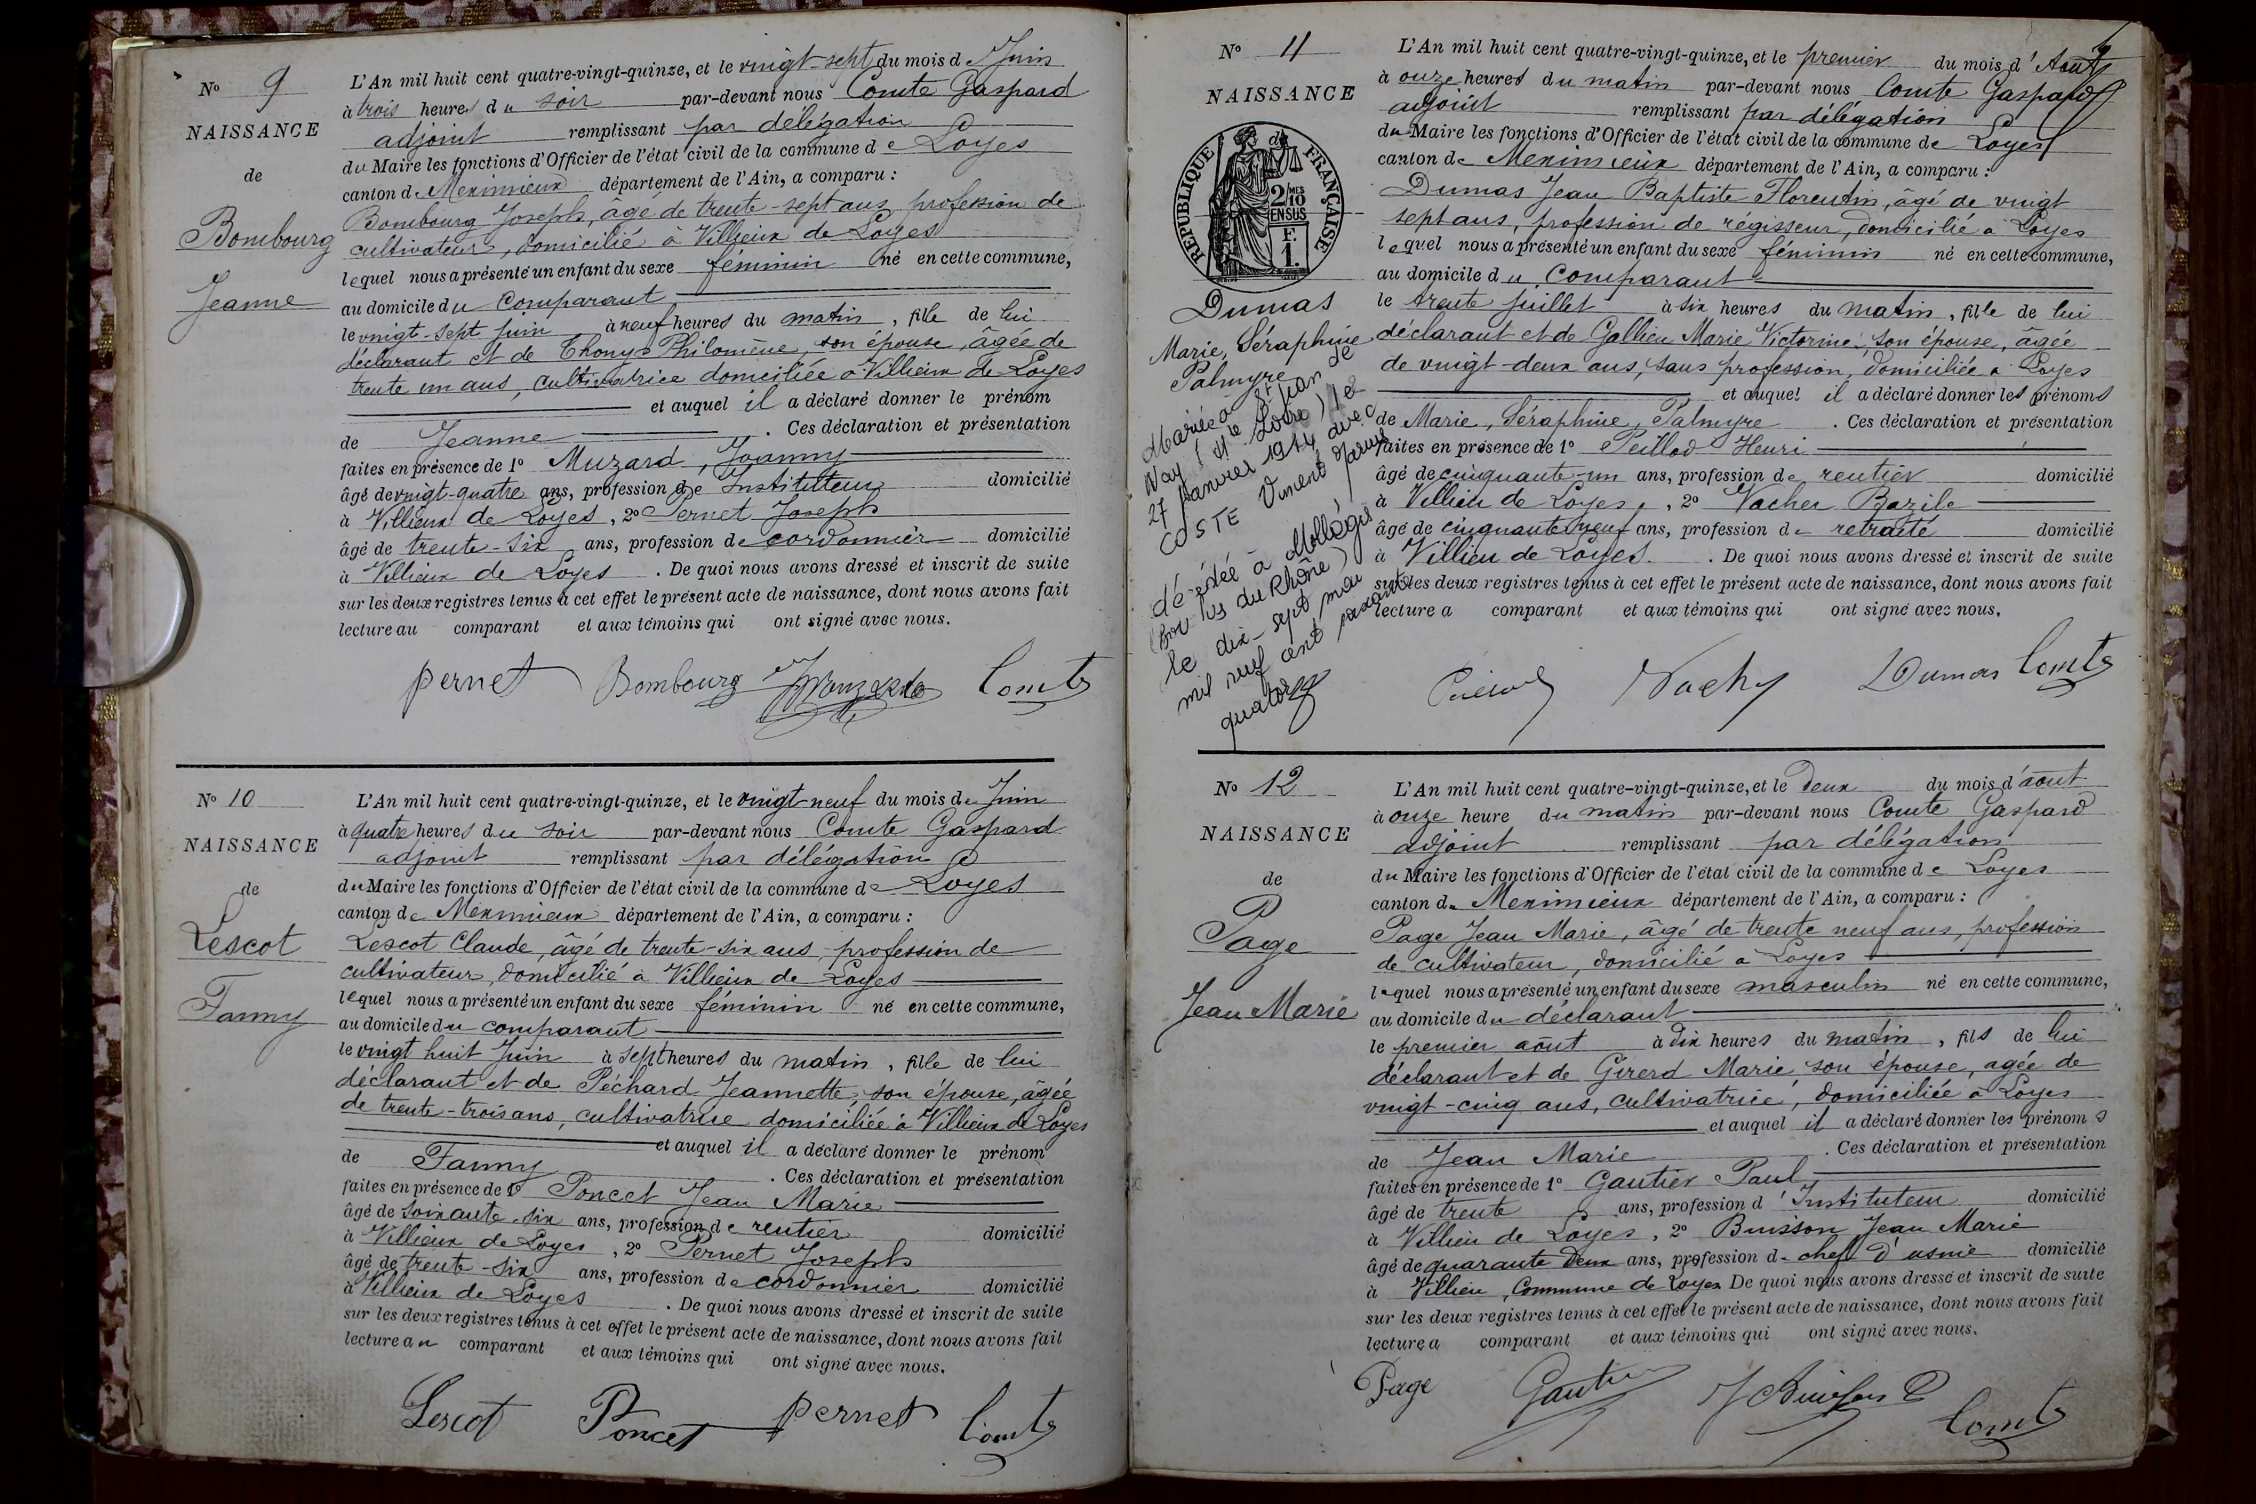 N° 9
NAISSANCE
de
Bombourg
Jeanne
L'An mil huit cent quatre-vingt-quinze, et le vingt-sept du mois de Juin
à trois heures du soir par-devant nous Comte Gaspard
adjoint remplissant par délégation
du Maire les fonctions d'Officier de l'état civil de la commune de Loyes
canton de Meximieux département de l'Ain, a comparu :
Bombourg Joseph, âgé de trente-sept ans, profession de
cultivateur, domicilié à Villieux de Loyes
lequel nous a présenté un enfant du sexe féminin né en cette commune,
au domicile du comparant
le vingt-sept juin à neuf heures du matin, fille de lui
déclarant et de Thonys Philomène, son épouse, âgée de
trente un ans, cultivatrice domiciliée à Villieux de Loyes
et auquel il a déclaré donner le prénom
de Jeanne . Ces déclaration et présentation
faites en présence de 1° Muzard, Joanny
âgé de vingt-quatre ans, profession de Instituteur domicilié
à Villieux de Loyes, 2° Pernet Joseph
âgé de trente-six ans, profession de cordonnier domicilié
à Villieux de Loyes . De quoi nous avons dressé et inscrit de suite
sur les deux registres tenus à cet effet le présent acte de naissance, dont nous avons fait
lecture au comparant et aux témoins qui ont signé avec nous.
Pernet Bombourg Muzard Comte
N° 10
NAISSANCE
de
Lescot
Fanny
L'An mil huit cent quatre-vingt-quinze, et le vingt neuf du mois de Juin
à quatre heures du soir par-devant nous Comte Gaspard
adjoint remplissant par délégation
du Maire les fonctions d'Officier de l'état civil de la commune de Loyes
canton de Meximieux département de l'Ain, a comparu :
Lescot Claude, âgé de trente-six ans, profession de
cultivateur, domicilié à Villieux de Loyes
lequel nous a présenté un enfant du sexe féminin né en cette commune,
au domicile du comparant
le vingt huit Juin à sept heures du matin, fille de lui
déclarant et de Péchard Jeannette, son épouse, âgée
de trente-trois ans, cultivatrice domiciliée à Villieux de Loyes
et auquel il a déclaré donner le prénom
de Fanny . Ces déclaration et présentation
faites en présence de 1° Poncet Jean Marie
âgé de soixante-six ans, profession de rentier domicilié
à Villieux de Loyes, 2° Pernet Joseph
âgé de trente-six ans, profession de cordonnier domicilié
à Villieux de Loyes . De quoi nous avons dressé et inscrit de suite
sur les deux registres tenus à cet effet le présent acte de naissance, dont nous avons fait
lecture au comparant et aux témoins qui ont signé avec nous.
Lescot Poncet Pernet Comte
N° 11
NAISSANCE
RÉPUBLIQUE FRANÇAISE
2/10 MES
EN SUS
F.
1.
Dumas
Marie, Séraphine
Palmyre
Mariée à St Jean de
Nay (Hte Loire) le
27 Janvier 1914 avec
COSTE Vincent Marius
décédée à Mollégès
(Bouches du Rhône)
le dix-sept mai
mil neuf cent soixante
quatorze
L'An mil huit cent quatre-vingt-quinze, et le premier du mois d'Août
à onze heures du matin par-devant nous Comte Gaspard
adjoint remplissant par délégation
du Maire les fonctions d'Officier de l'état civil de la commune de Loyes
canton de Meximieux département de l'Ain, a comparu :
Dumas Jean Baptiste Florentin, âgé de vingt
sept ans, profession de régisseur, domicilié à Loyes
lequel nous a présenté un enfant du sexe féminin né en cette commune,
au domicile du comparant
le trente juillet à six heures du matin, fille de lui
déclarant et de Gallien Marie Victorine, son épouse, âgée
de vingt-deux ans, sans profession, domiciliée à Loyes
et auquel il a déclaré donner les prénoms
de Marie, Séraphine, Palmyre . Ces déclaration et présentation
faites en présence de 1° Peillod Henri
âgé de cinquante-un ans, profession de rentier domicilié
à Villieu de Loyes, 2° Vacher Bazile
âgé de cinquante neuf ans, profession de retraité domicilié
à Villieu de Loyes . De quoi nous avons dressé et inscrit de suite
sur les deux registres tenus à cet effet le présent acte de naissance, dont nous avons fait
lecture a comparant et aux témoins qui ont signé avec nous.
Dumas Comte
N° 12
NAISSANCE
de
Page
Jean Marie
L'An mil huit cent quatre-vingt-quinze, et le deux du mois d'août
à onze heure du matin par-devant nous Comte Gaspard
adjoint remplissant par délégation
du Maire les fonctions d'Officier de l'état civil de la commune de Loyes
canton de Meximieux département de l'Ain, a comparu :
Page Jean Marie, âgé de trente neuf ans, profession
de cultivateur, domicilié à Loyes
lequel nous a présenté un enfant du sexe masculin né en cette commune,
au domicile du déclarant
le premier août à dix heures du matin, fils de lui
déclarant et de Girerd Marie, son épouse, agée de
vingt-cinq ans, cultivatrice, domiciliée à Loyes
et auquel il a déclaré donner les prénoms
de Jean Marie . Ces déclaration et présentation
faites en présence de 1° Gautier Paul
âgé de trente ans, profession d'Instituteur domicilié
à Villieu de Loyes, 2° Buisson Jean Marie
âgé de quarante deux ans, profession de chef d'usine domicilié
à Villieu, Commune de Loyes De quoi nous avons dressé et inscrit de suite
sur les deux registres tenus à cet effet le présent acte de naissance, dont nous avons fait
lecture a comparant et aux témoins qui ont signé avec nous.
Page Gautier J Buisson Comte